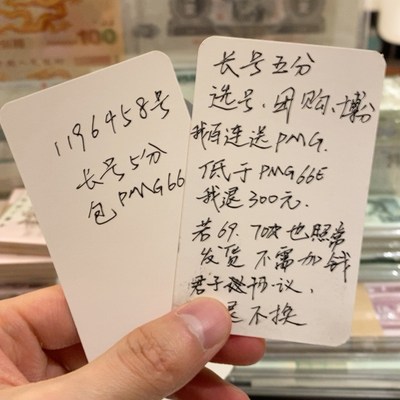 1196458号
长号5分
包PMG66
长号五分
选号、团购、博分
我百连送PMG.
低于PMG66E
我退300元.
若69.70块也照常
发货 不需加钱
君子协议、
不换
100